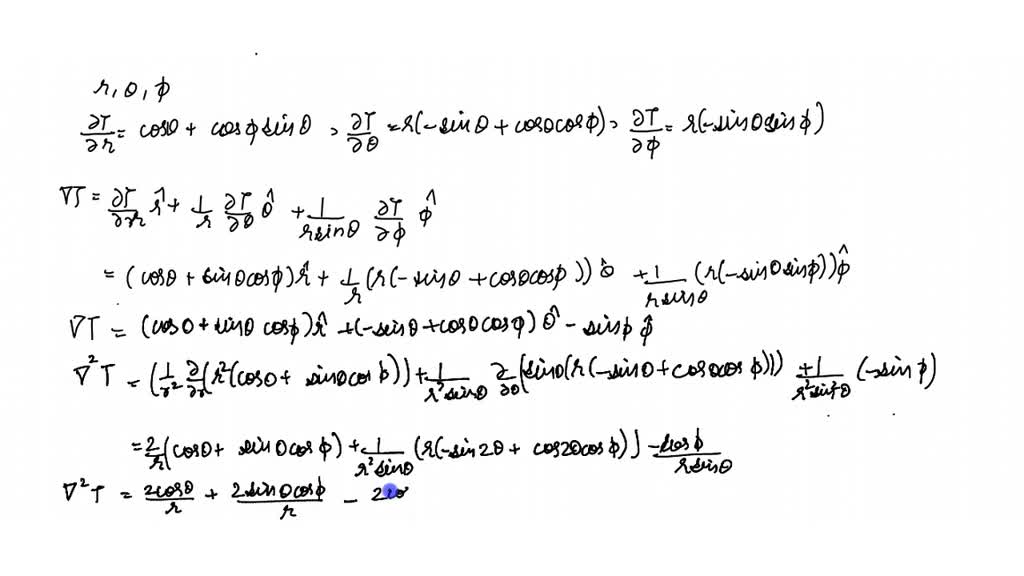 r, θ, ϕ
∂T/∂r = cosθ + cosϕ sinθ , ∂T/∂θ = r(-sinθ + cosθcosϕ) , ∂T/∂ϕ = r(-sinθsinϕ)
∇T = ∂T/∂r r̂ + 1/r ∂T/∂θ θ̂ + 1/(rsinθ) ∂T/∂ϕ ϕ̂
= (cosθ + sinθcosϕ)r̂ + 1/r (r(-sinθ + cosθcosϕ)) θ̂ + 1/(rsinθ) (r(-sinθsinϕ))ϕ̂
∇T = (cosθ + sinθ cosϕ)r̂ + (-sinθ + cosθ cosϕ) θ̂ - sinϕ ϕ̂
∇²T = (1/r² ∂/∂r (r²(cosθ + sinθcosϕ)) + 1/(r²sinθ) ∂/∂θ (sinθ(r(-sinθ + cosθcosϕ))) + 1/(r²sin²θ) (-sinϕ)
= 2/r (cosθ + sinθcosϕ) + 1/(r²sinθ) (r(-sin2θ + cos2θcosϕ)) - cosϕ/(rsinθ)
∇²T = 2cosθ/r + 2sinθcosϕ/r - 2co